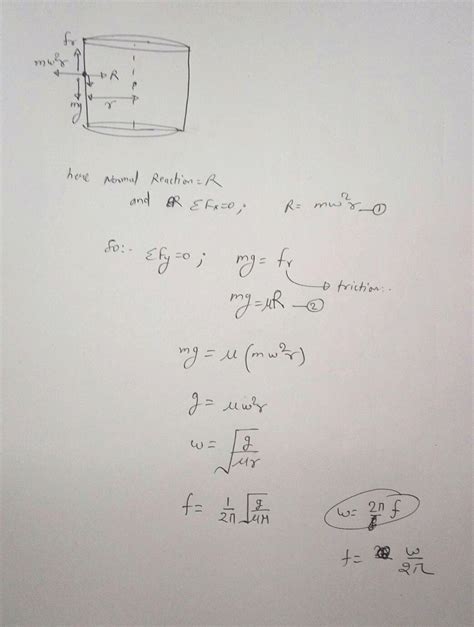 fr
mw²r
R
mg
r
here Normal Reaction = R
and R ΣFx=0; R = mw²r — ①
So:- ΣFy=0; mg = fr
friction:-
mg = μR — ②
mg = μ(mw²r)
g = μw²r
w = √(g/μr)
f = 1/2π √(g/μr)
w = 2π f
f = w/2π